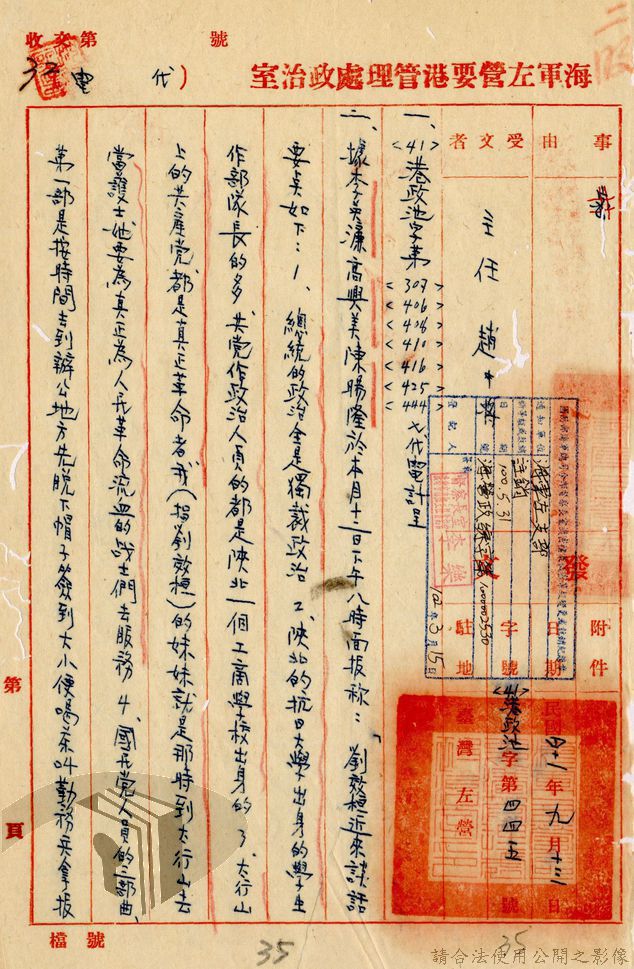 收文第　　號
海軍左營要港管理處政治室
(代電)
37
事由
受文者
主任趙
附件
日期 民國四十一年九月十三日
字號 <41>港政池字第四四五號
駐地 臺灣左營
發文
通知單位 海軍左支部
註銷
日期 100.5.31
海營政綜字第1000002530
登記人
102年3月15日
一、<41>港政池字第<307><406><408><410><416><425><444>七代電計呈
二、據李英濂高興美陳暘隆於本月十二日下午八時面报称：劉效桓近來談話
要点如下：1、總統的政治全是獨裁政治 2、陝北的抗日大學出身的學生
作部隊長的多 共党作政治人員的都是陝北一個工商學校出身的 3、太行山
上的共產党都是真正革命者我（指劉效桓）的妹妹就是那時到太行山去
當護士她要為真正為人民革命流血的战士們去服務 4、國民党人員的三部曲、
第一部是按時間去到辦公地方先脫下帽子簽到大小便喝茶叫勤務兵拿报
第　頁
檔號
35
35
請合法使用公開之影像